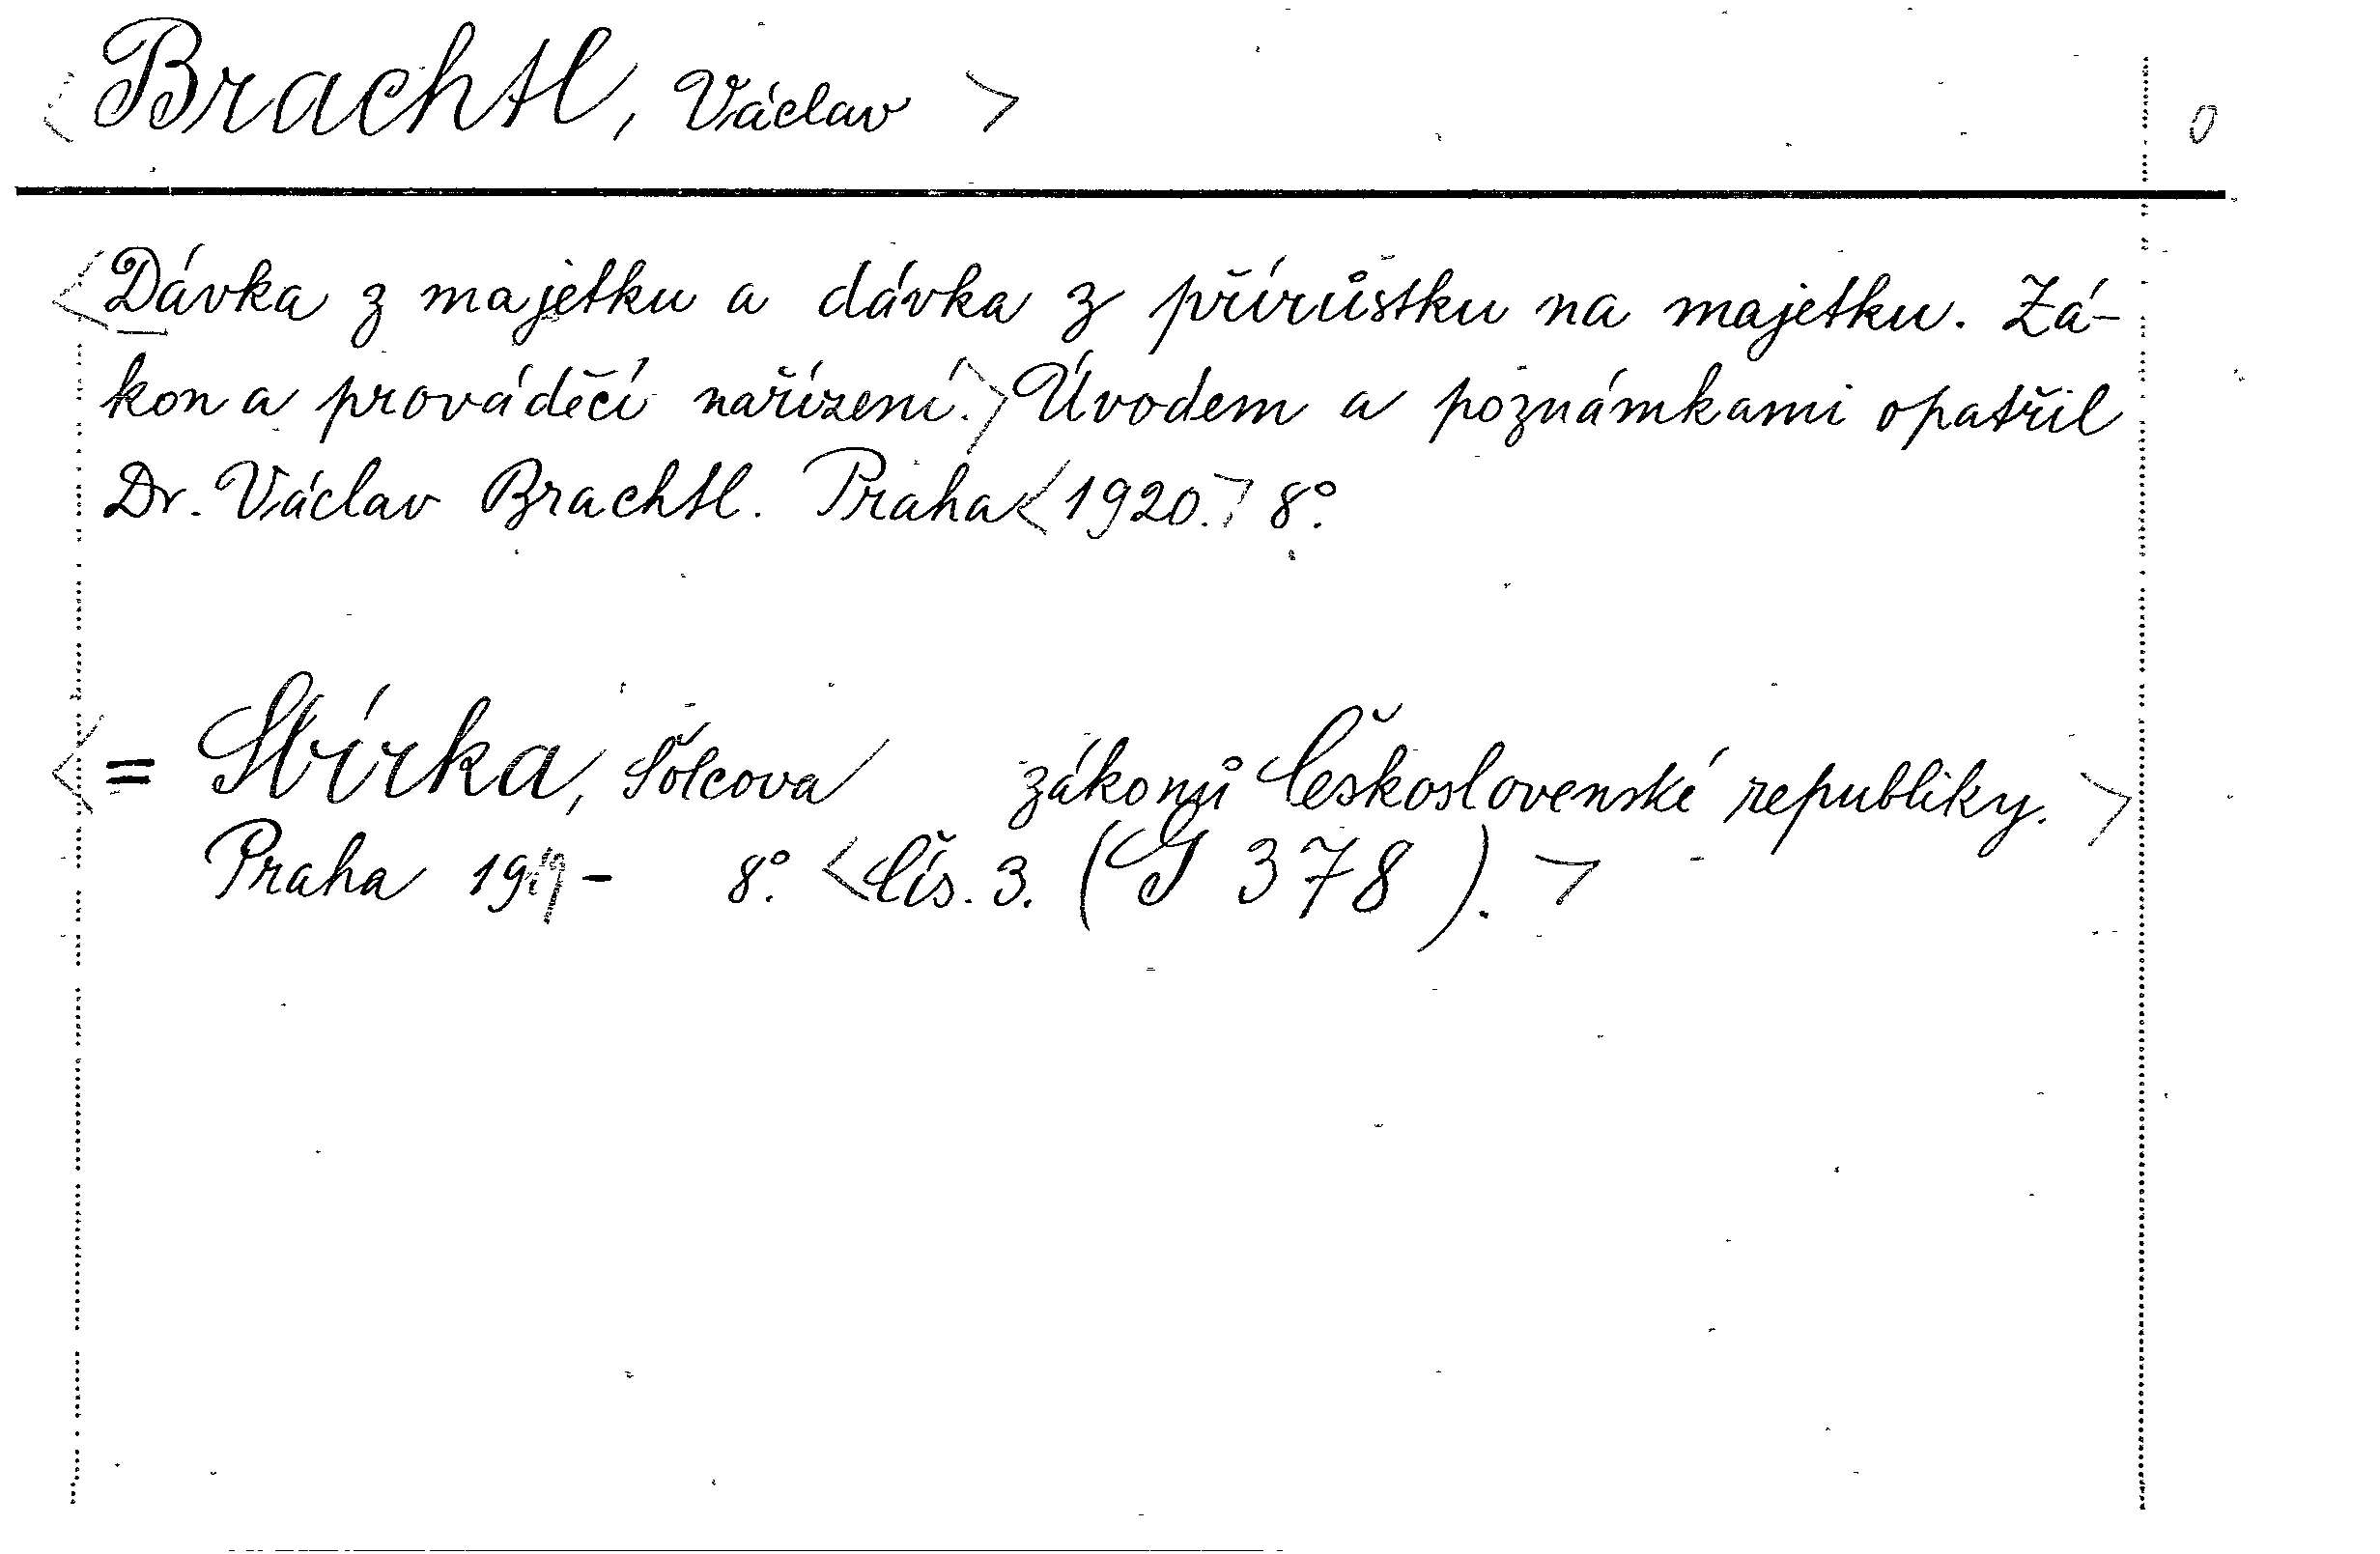 <Brachtl, Václav> 0
<Dávka z majetku a dávka z přírůstku na majetku. Zá-
kon a prováděcí nařízení.> Úvodem a poznámkami opatřil
Dr. Václav Brachtl. Praha <1920.> 8°.
<= Sbírka, Šolcova zákonů Československé republiky.>
Praha 1919- 8°. <Čís. 3. (G 378).>